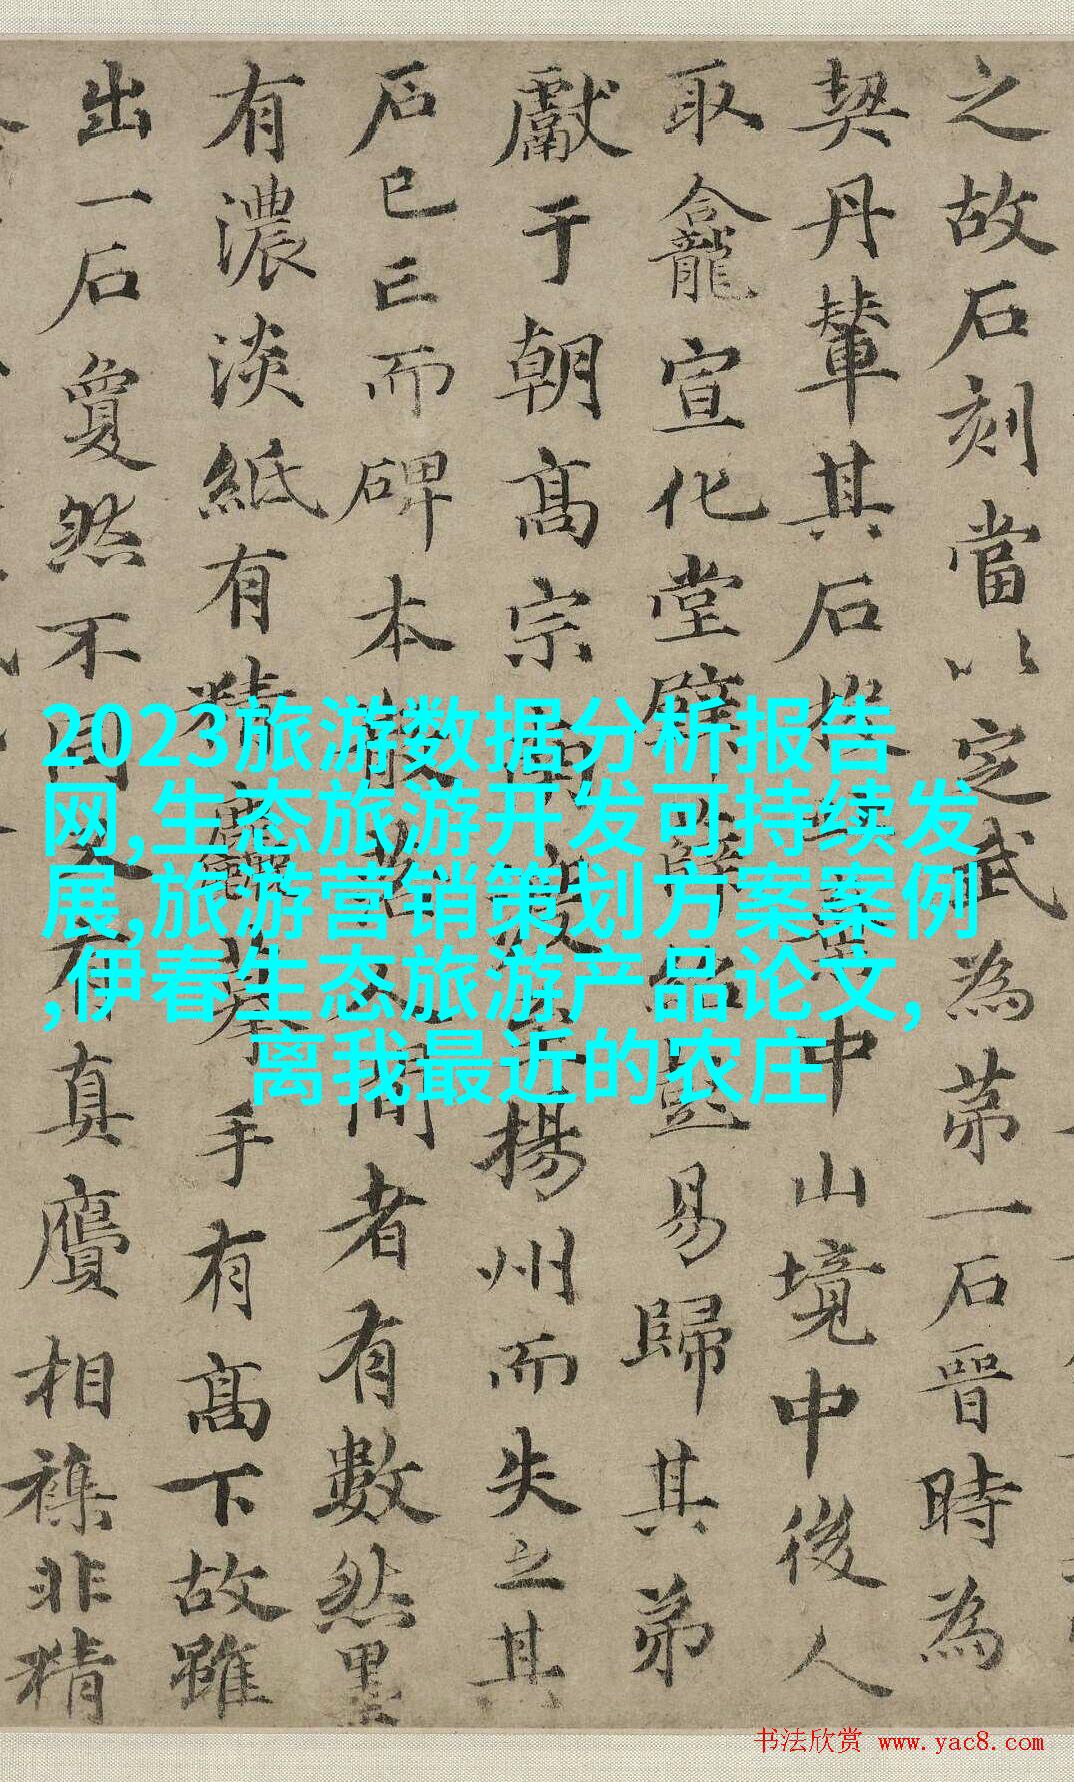 之故石刻當以定武為苐一石晉時為
契丹輦其石中山境中後人
取龕宣化堂壁薛紹彭易歸其弟
獻于朝髙宗南渡揚州而失之其
石已亡而碑本散落人間者有數然墨
有濃淡紙有精麤摹手有髙下故雖
出一石夐然不同又有真贋相襍非精
2023旅游数据分析报告
网,生态旅游开发可持续发
展,旅游营销策划方案案例
,伊春生态旅游产品论文,
离我最近的农庄
书法欣赏 www.yac8.com